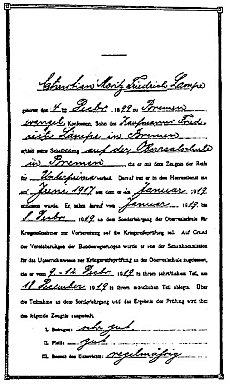 Christian Moritz Friedrich Lampe
geboren den 4. Febr. 1899 zu Bremen
evangel. Konfession, Sohn des Kaufmanns Fried-
rich Lampe in Bremen
erhielt seine Schulbildung auf der Oberrealschule
in Bremen, die er mit dem Zeugnis der Reife
für Unterprima verliess. Darauf trat er in den Heeresdienst ein
am Juni 1917 aus dem er im Januar 1919
entlassen wurde. Er nahm darauf vom Januar 1919 bis
1919 an dem Sonderlehrgang der Oberrealschule für
Kriegsteilnehmer zur Vorbereitung auf die Kriegsreifeprüfung teil. Auf Grund
der Vereinbarungen der Bundesregierungen wurde er von der Senatskommission
für das Unterrichtswesen zur Kriegsreifeprüfung an der Oberrealschule zugelassen,
die er vom 9.-12. 1919 in ihrem schriftlichen Teil, am
18. 1919 in ihrem mündlichen Teil ablegte. Über
die Teilnahme an dem Sonderlehrgang und das Ergebnis der Prüfung wird ihm
das folgende Zeugnis ausgestellt.
I. Betragen: sehr gut
II. Fleiß: gut
III. Besuch des Unterrichts: regelmäßig